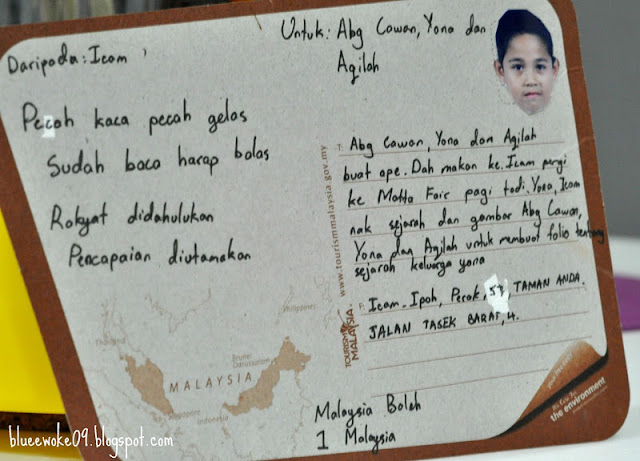 Daripada: Icam
Untuk: Abg Cawan, Yona dan
Aqilah
Pecah kaca pecah gelas
Sudah baca harap balas
Rakyat didahulukan
Pencapaian diutamakan
T: Abg Cawan, Yona dan Aqilah
buat ape. Dah makan ke. Icam pergi
ke Matta Fair pagi tadi. Yona, Icam
nak sejarah dan gambar Abg Cawan,
Yona dan Aqilah untuk membuat folio tentang
sejarah keluarga yona
F: Icam. Ipoh, Perak, 57, TAMAN ANDA.
JALAN TASEK BARAT, 4.
www.tourismmalaysia.gov.my
TOURISM
MALAYSIA
Thailand
Philippines
Brunei
Darussalam
MALAYSIA
Singapore
Indonesia
Malaysia Boleh
1 Malaysia
the environment
blueewoke09.blogspot.com